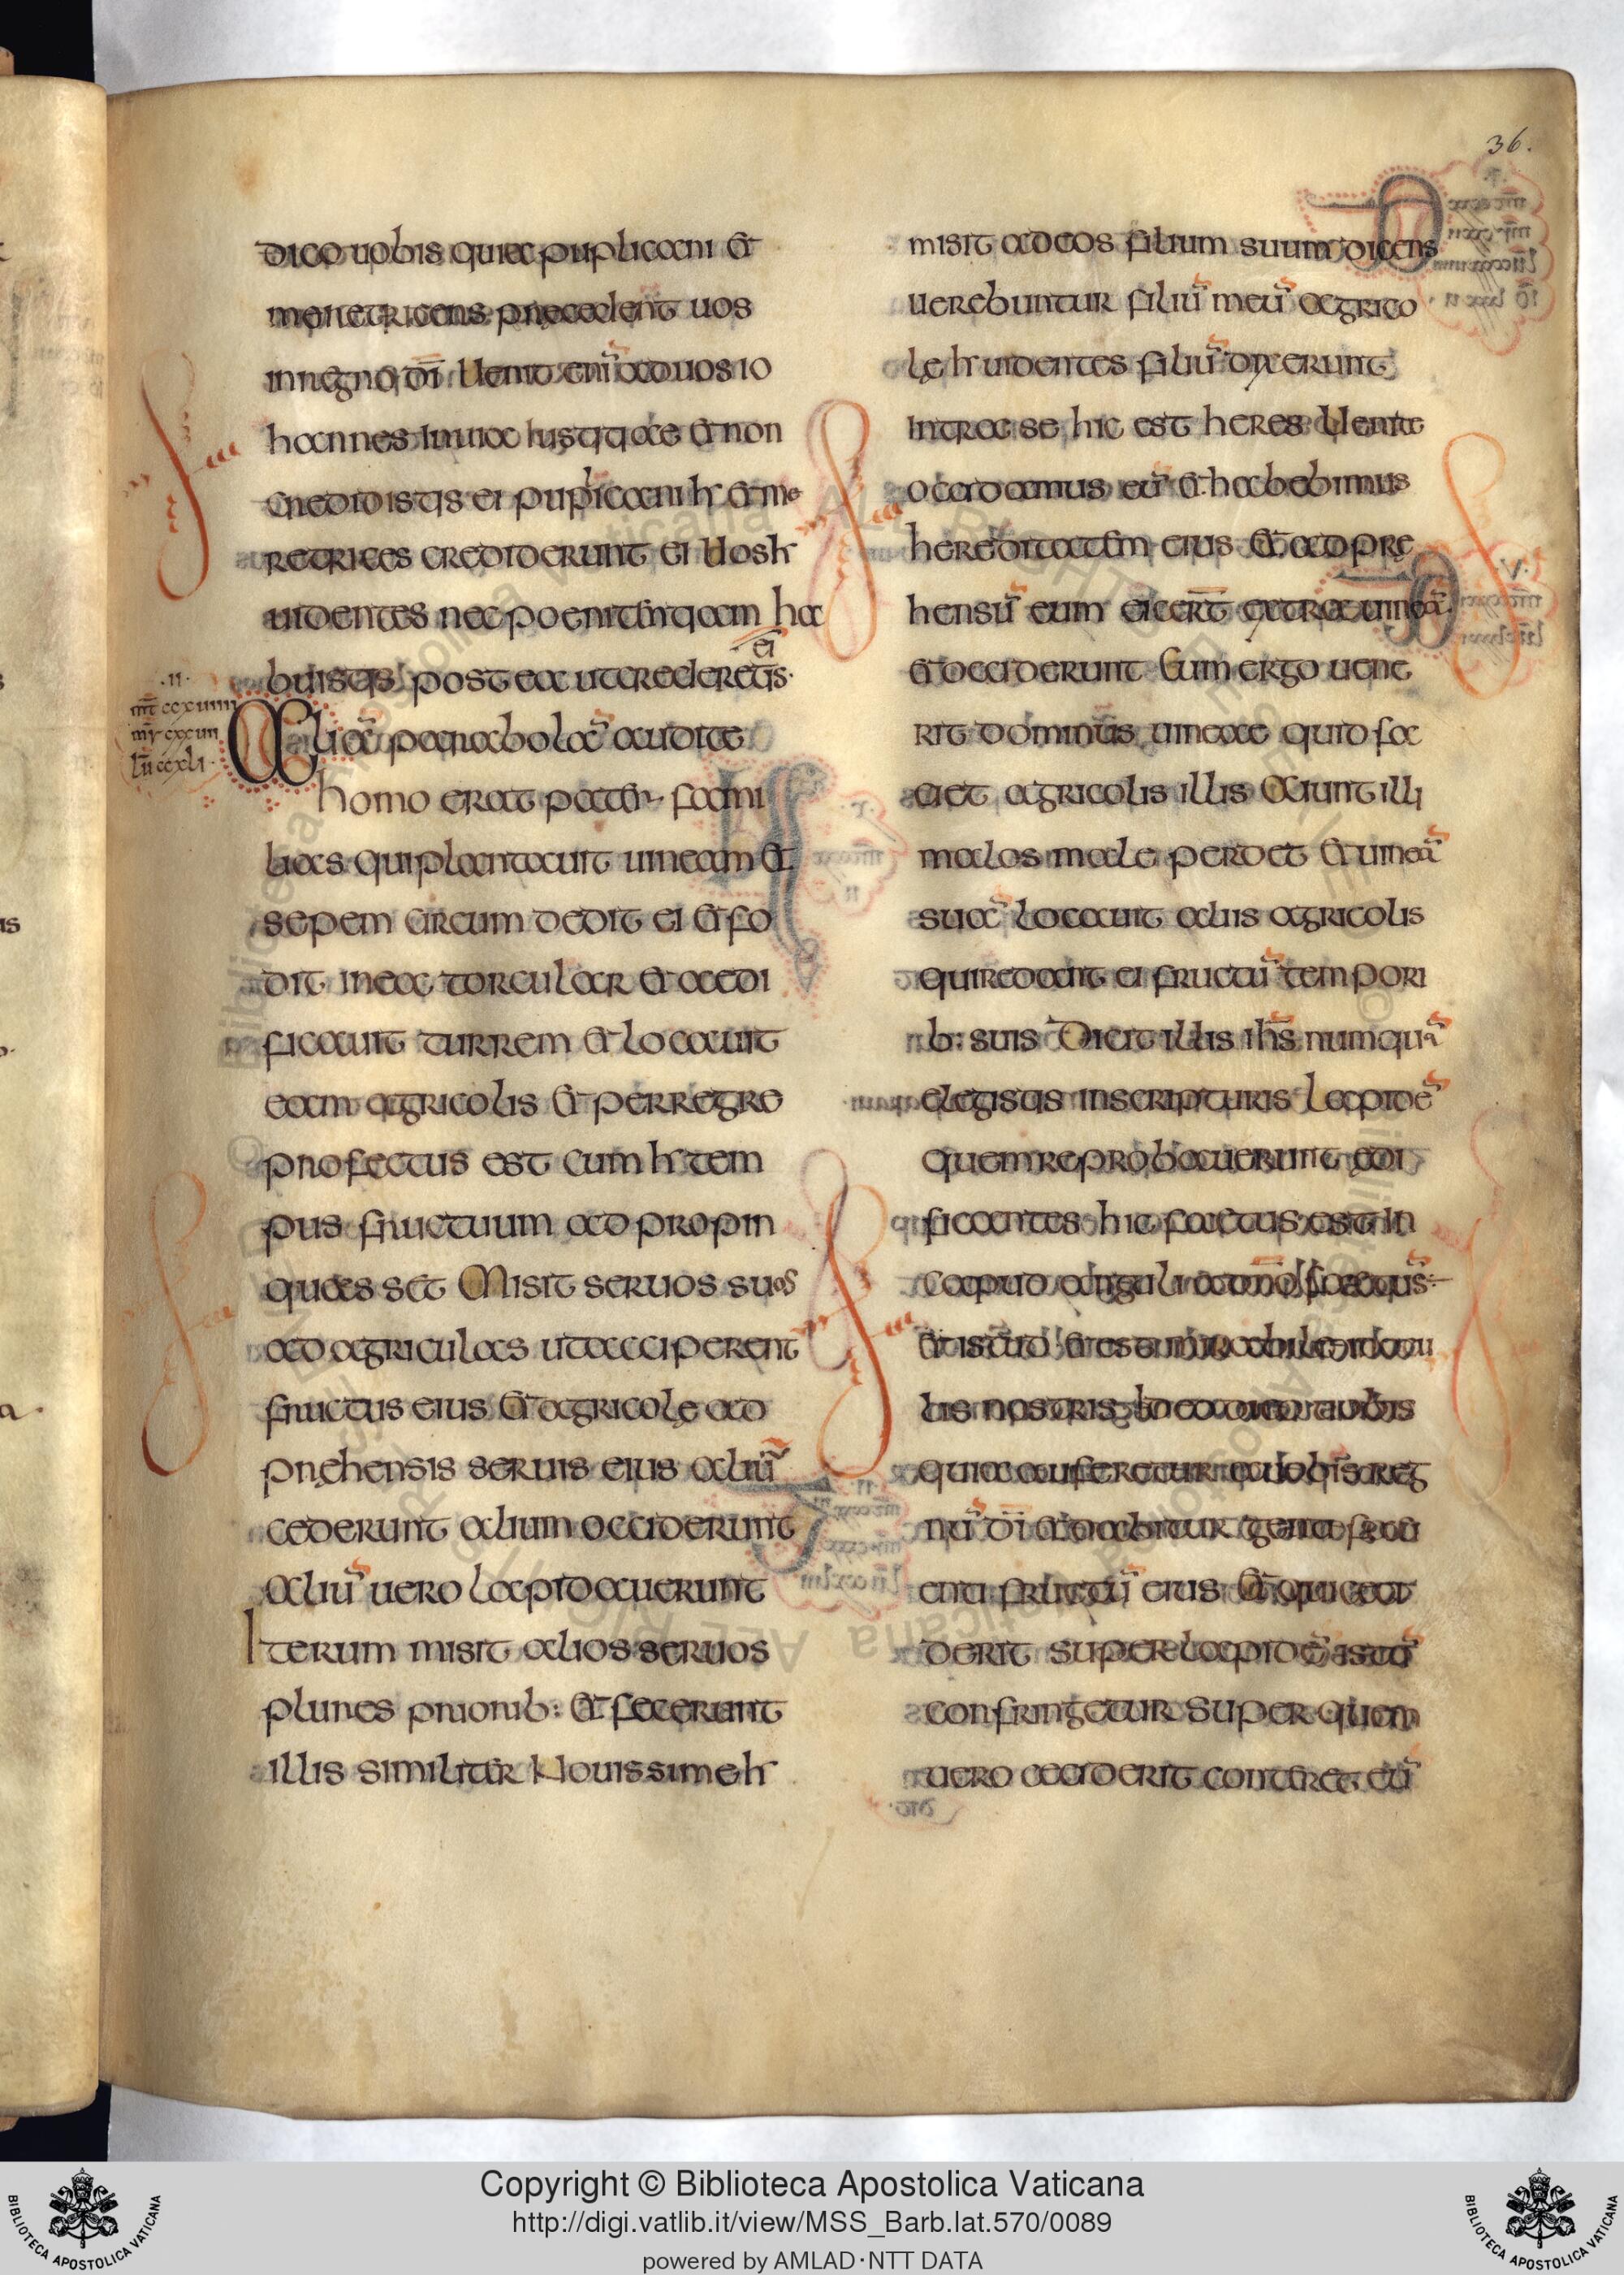 36.
dico uobis quia puplicani et
meretrices precedent uos
in regno dī Uenit enī ad uos io
hannes in uia iustitiae et non
credidistis ei puplicani hr et me
retrices crediderunt ei Uos hr
uidentes nec poenitentiam ha
buistis postea ut crederetis ei
·II·
mt̄ ccxuiiii
mr̄ cxxuii
lū ccxli
Aliā parabolā audite
homo erat pater fami
lias qui plantauit uineam et
sepem circum dedit ei et fo
dit in ea torcular et aedi
ficauit turrem et locauit
eam agricolis et perregre
profectus est Cum hr tem
pus fructuum ad propin
quasset Misit seruos suos
ad agriculas ut acciperent
fructus eius et agricolę ad
pręhensis seruis eius aliū
cederunt alium occiderunt
Aliū uero lapidauerunt
Iterum misit alios seruos
plures priorib: et fecerunt
illis similiter Nouissime hr
misit ad eos filium suum dicens
uerebuntur filiū meū agrico
lę hr uidentes filiū dixerunt
intra se hic est heres Uenite
occidamus eū et habebimus
hereditatem eius et ad pre
hensū eum eicert̄ extra uineā
et occiderunt Cum ergo uene
rit dominus uineae quid fa
ciet agricolis illis Aiunt illi
malos male perdet et uineā
suā locauit aliis agricolis
qui reddant ei fructū tempori
b: suis Dicit illis ihs̄ numquā
legistis in scripturis lapidē
quem reprobauerunt edi
ficantes hic factus est in
caput anguli a dnō factus
est istud et est mirabile in ocu
lis nostris Ideo dico uobis
quia auferetur a uobis reg
nū dī et dabitur genti faci
enti fructū eius Et qui ceci
derit super lapidē istū
confringetur super quem
uero ceciderit conteret eū
Copyright © Biblioteca Apostolica Vaticana
http://digi.vatlib.it/view/MSS_Barb.lat.570/0089
powered by AMLAD·NTT DATA
BIBLIOTECA APOSTOLICA VATICANA
BIBLIOTECA APOSTOLICA VATICANA